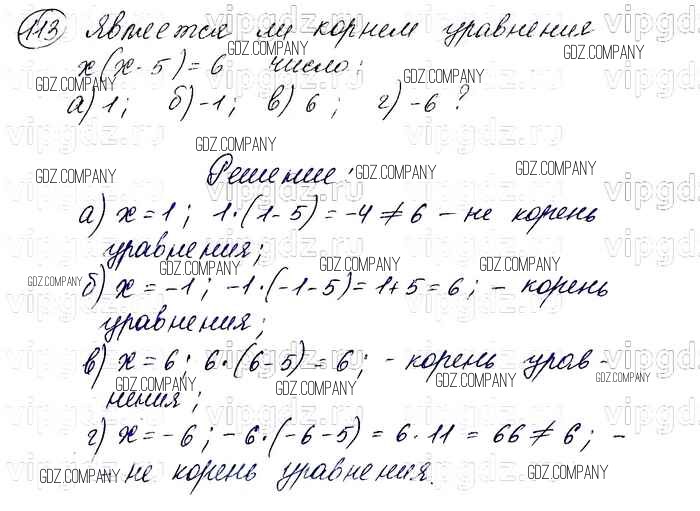 113 Является ли корнем уравнения
x(x-5)=6 число:
а) 1; б) -1; в) 6; г) -6?
Решение:
а) x=1; 1·(1-5)=-4≠6 - не корень
уравнения;
б) x=-1; -1·(-1-5)=1+5=6; - корень
уравнения;
в) x=6; 6·(6-5)=6; - корень урав-
нения;
г) x=-6; -6·(-6-5)=6·11=66≠6; -
- не корень уравнения.
GDZ.COMPANY
vipgdz.ru